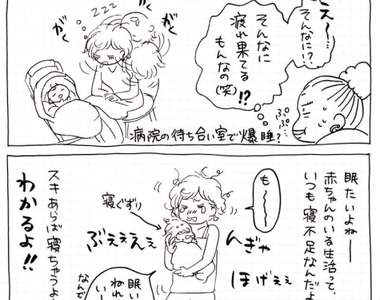 そんなに!?
そんなに
疲れ果てる
もんなの(笑)
!?
ぷぷぷ
zzz
がく
がく
病院の待ち合い室で爆睡?
眠たいよねー
赤ちゃんのいる生活って、
いつも寝不足なんだよ
スキあらば寝ちゃうよ
わかるよ!!
も〜〜
寝ぐずり
ぶえぇえぇ
んぎゃ
ほげぇぇ
眠い
ねれ
いー
なんで